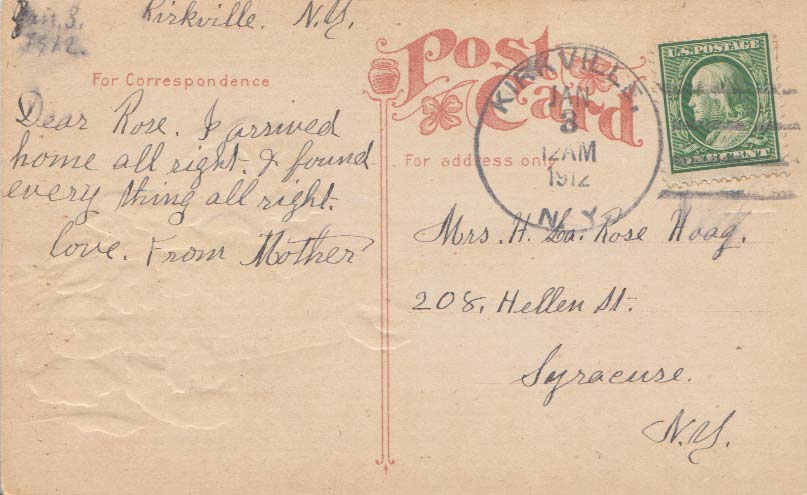 Jan. 3. Kirkville. N.Y.
1912.
For Correspondence
Dear Rose. I arrived
home all right. & found
every thing all right.
love. From Mother
Post
Card
For address only
KIRKVILLE,
JAN
3
12AM
1912
N.Y.
U.S. POSTAGE
ONE CENT
Mrs. H. La. Rose Hoag.
208, Hellen St.
Syracuse.
N.Y.